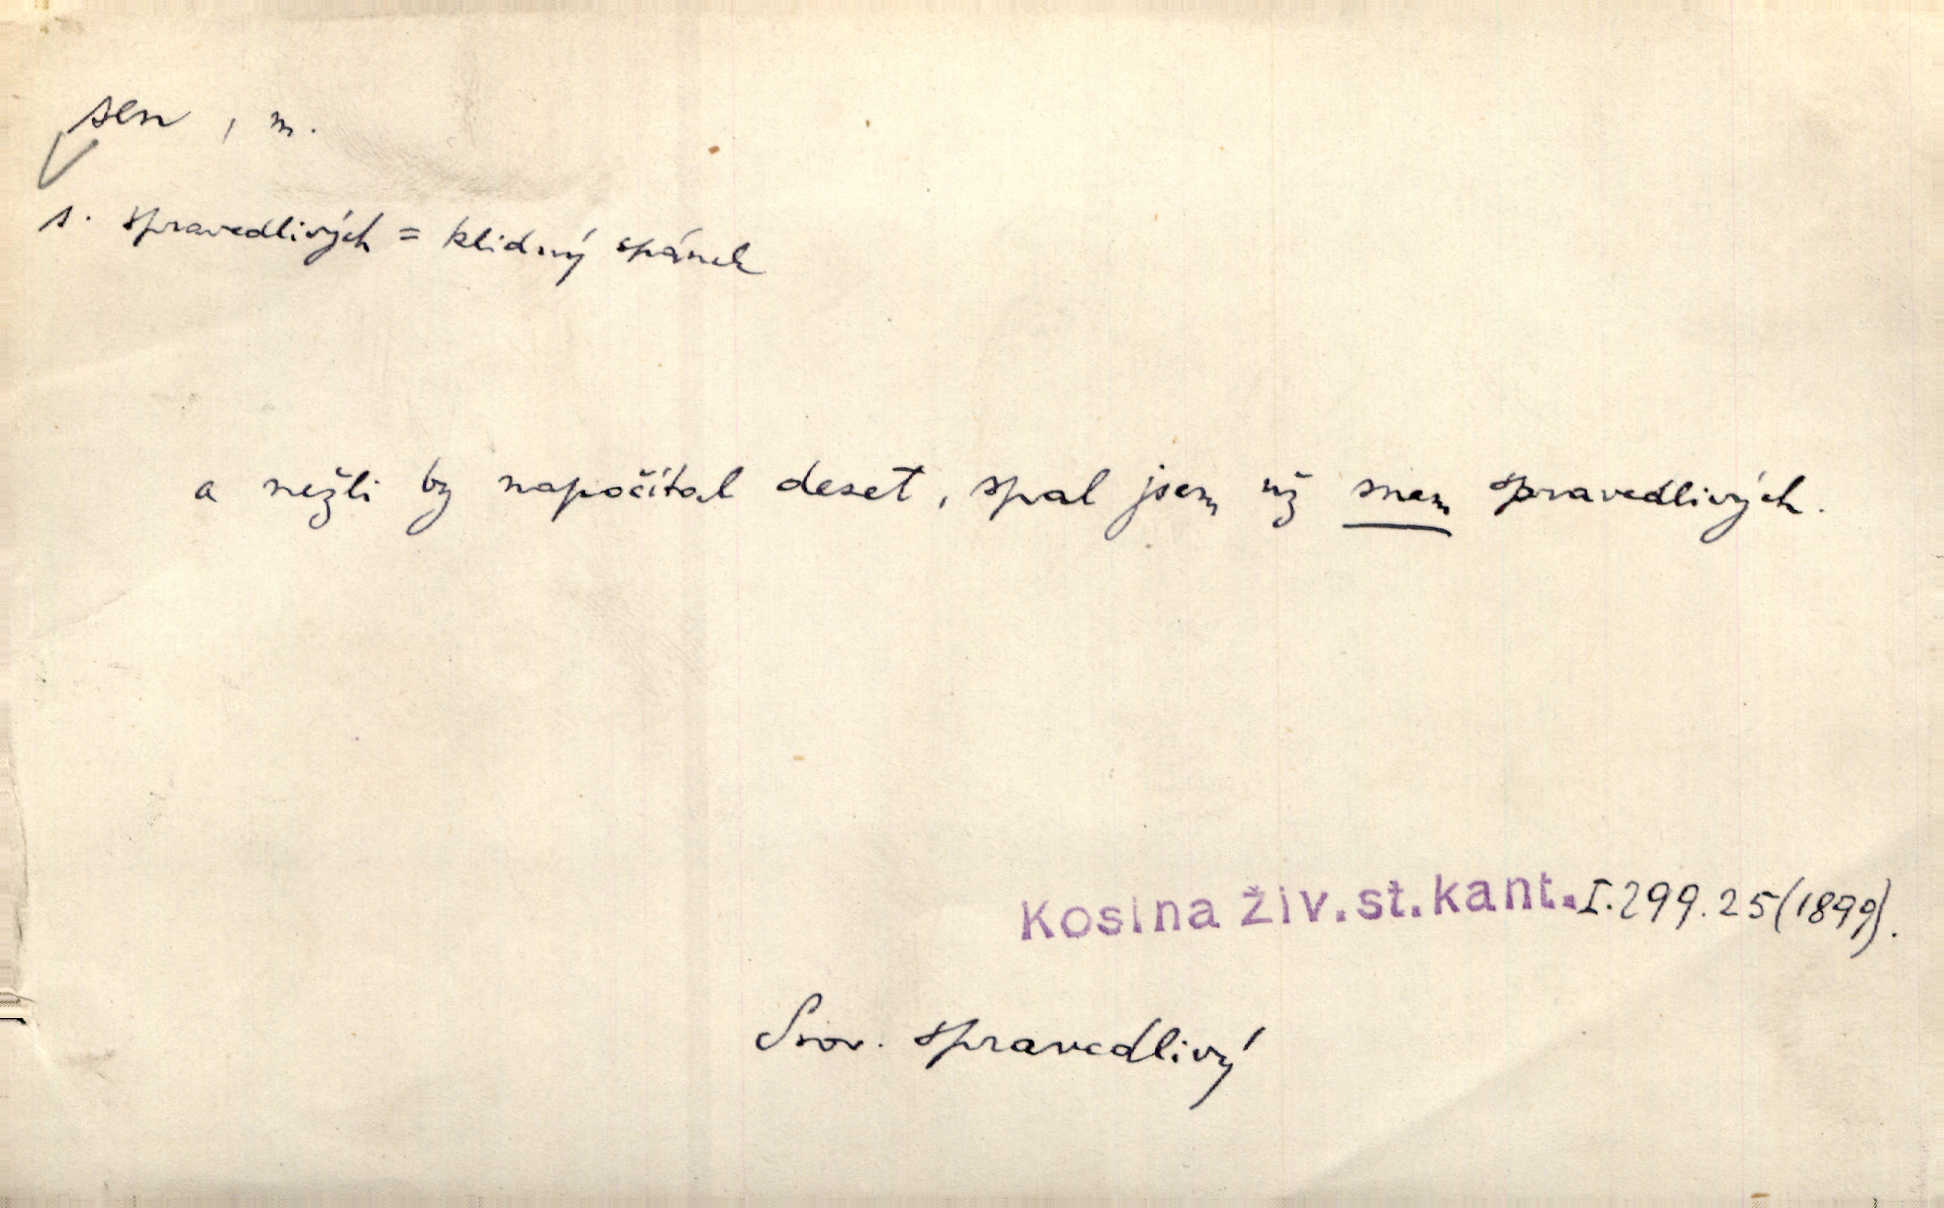 sen, m.
s. spravedlivých = klidný spánek
a nežli by napočítal deset, spal jsem už snem spravedlivých.
Kosina živ.st.kant. I.299.25(1899).
Srov. spravedlivý